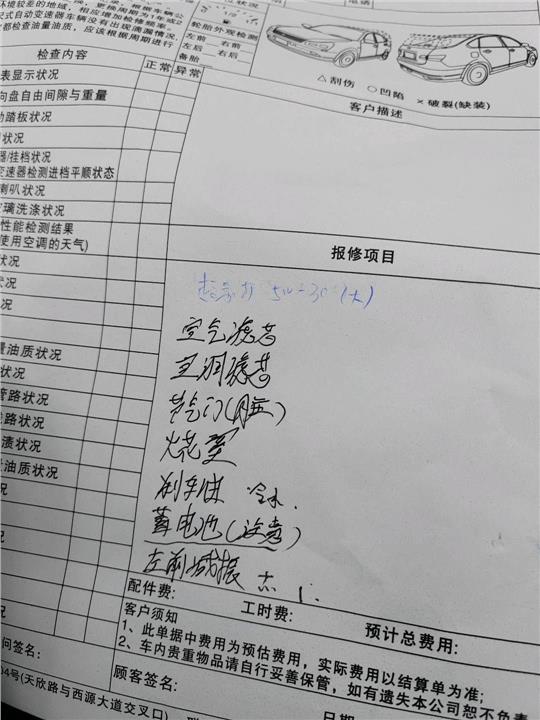 环境较差的地域，相应增加检修频率
式自动变速器车辆没有出现滴漏情况，
都检查油量油质，应该根据周期进行
轮胎外观检测
左前 右前
左后 右后
备胎
△刮伤 ○凹陷 ×破裂(缺装)
检查内容 正常 异常
客户描述
表显示状况
向盘自由间隙与重量
踏板状况
状况
器/挂档状况
变速器检测进档平顺状态
喇叭状况
玻璃洗涤状况
性能检测结果
使用空调的天气)
状况
报修项目
5W-30 (大)
空气滤芯
空调滤芯
节气门
火花塞
刹车油 冷水.
蓄电池
左前减振
量油质状况
状况
管路状况
路状况
渍状况
油质状况
配件费: 工时费: 预计总费用:
客户须知
1、此单据中费用为预估费用，实际费用以结算单为准;
2、车内贵重物品请自行妥善保管，如有遗失本公司恕不负责
问签名: 顾客签名: 日期
04号(天欣路与西源大道交叉口)